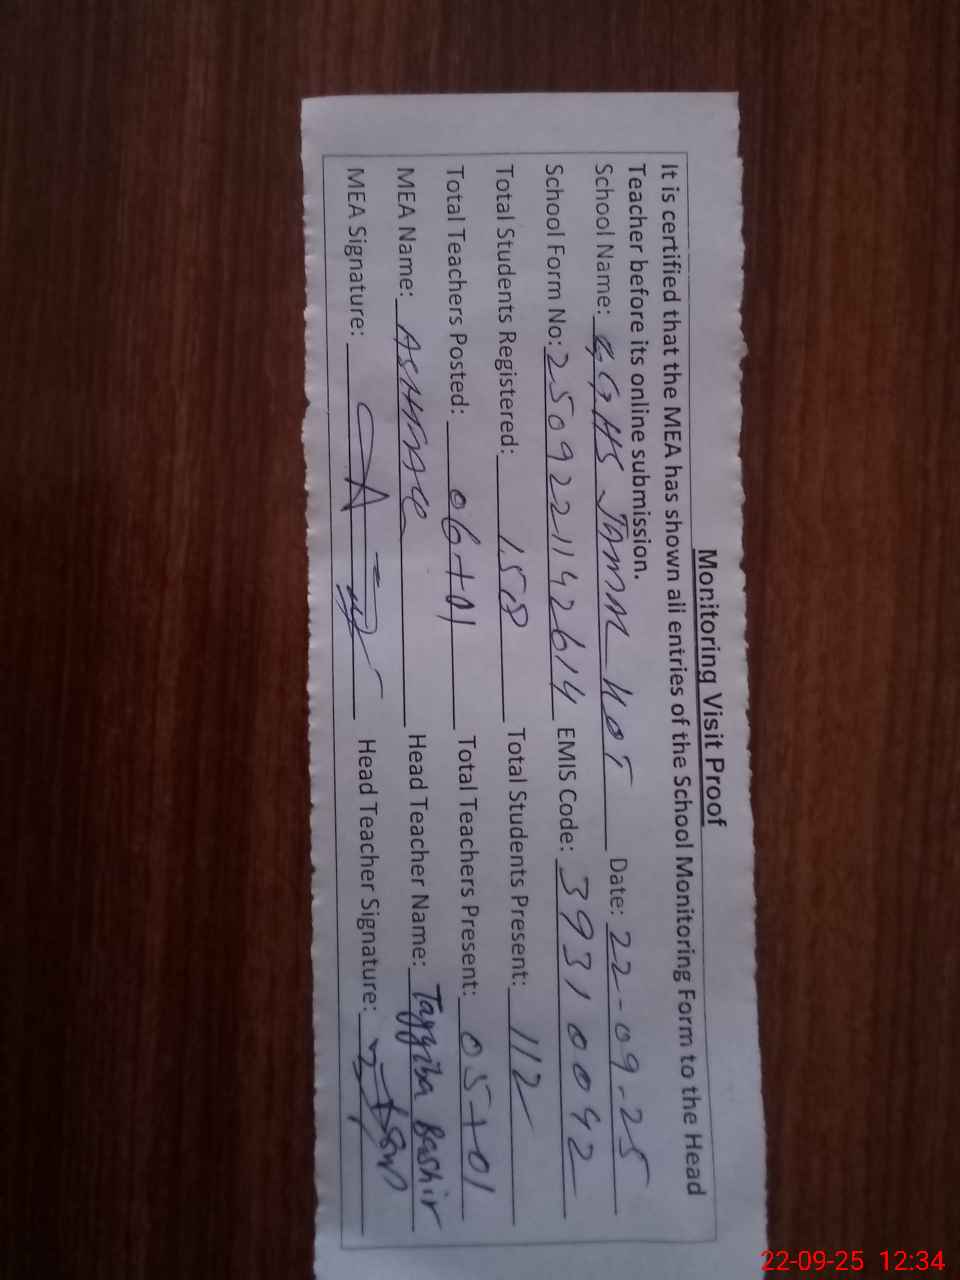 Monitoring Visit Proof
It is certified that the MEA has shown all entries of the School Monitoring Form to the Head
Teacher before its online submission.
School Name: GGHS Date: 22-09-25
School Form No: 2509221142614 EMIS Code: 39310092
Total Students Registered: 158 Total Students Present: 112
Total Teachers Posted: 06+01 Total Teachers Present: 05+01
MEA Name: Head Teacher Name: Tayyiba Bashir
MEA Signature: Head Teacher Signature:
22-09-25 12:34